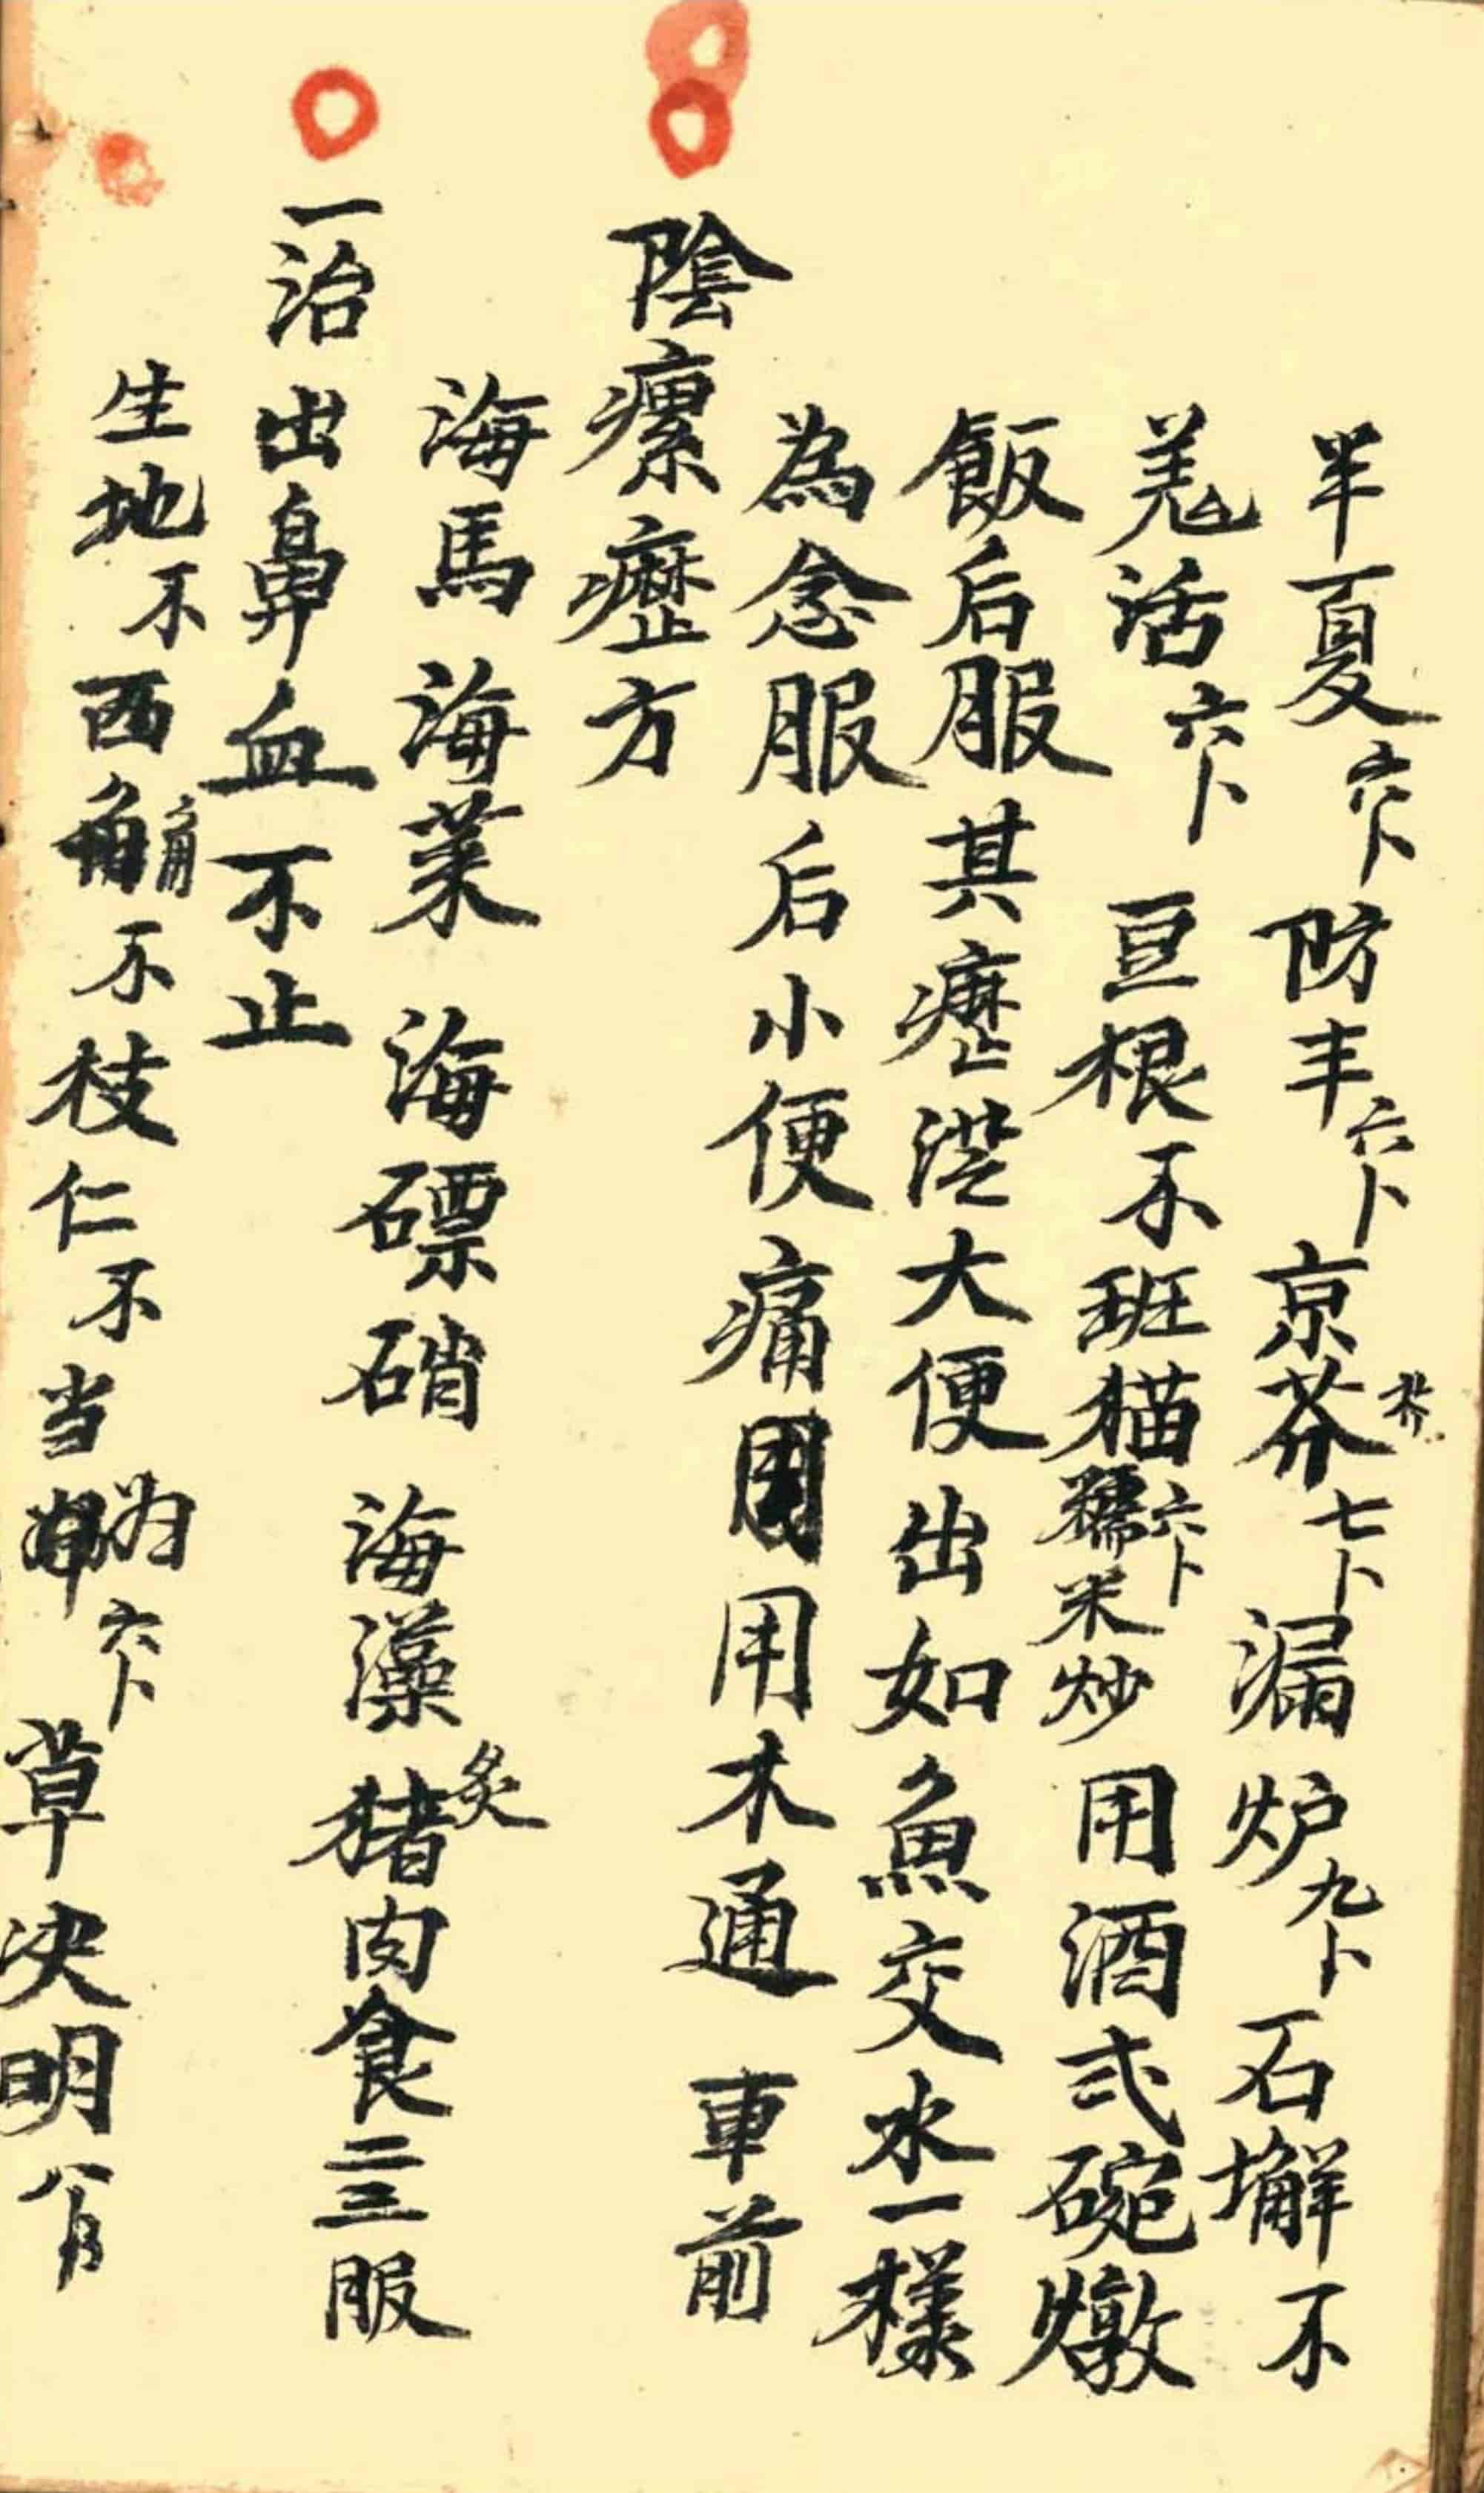 半夏六卜防丰六卜京芥七卜漏炉九卜石懈不
羌活六卜豆根不班猫六卜糯米炒用酒弍碗燉
飯后服其瘽涩大便出如魚交水一樣
為念服后小便痛用木通車前
陰瘰癧方
海馬海菜海硝海藻炙猪肉食二三服
一治出鼻血不止
生地不西角不枝仁不当归六卜草决明